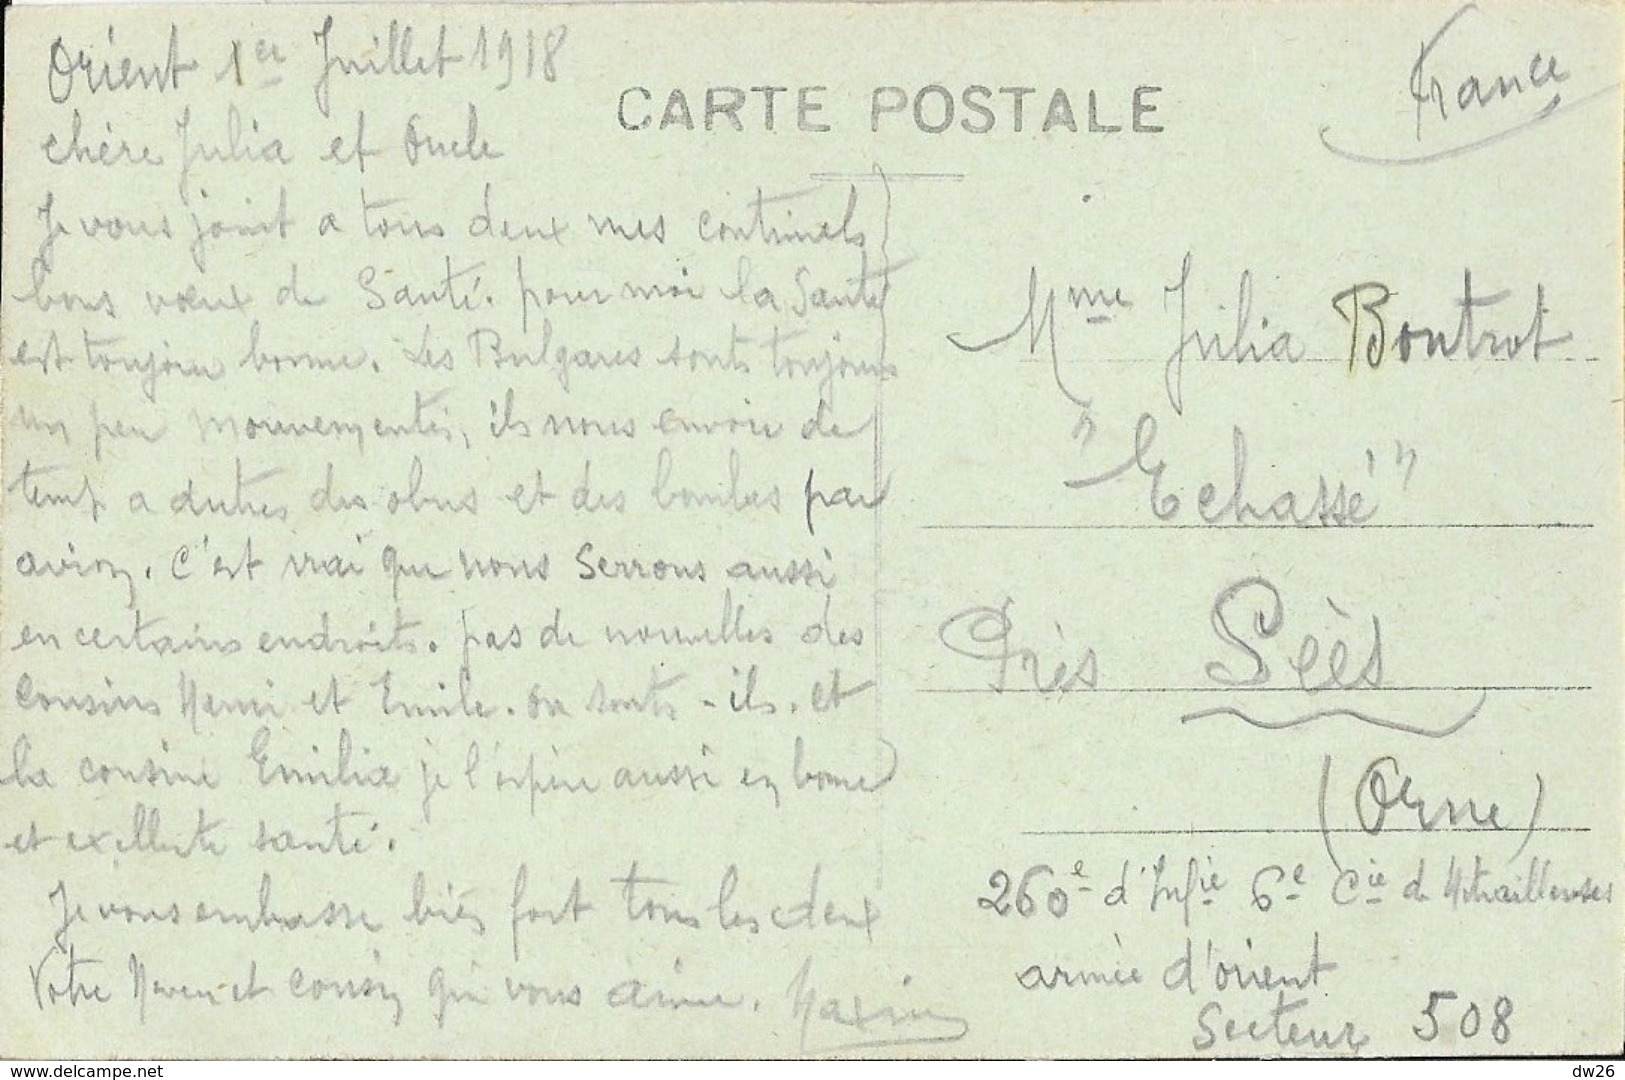 Orient 1er Juillet 1918
chère Julia et Oncle
Je vous joint a tous deux mes continuels
bons vœux de Santé. pour moi la Santé
est toujour bonne. Les Bulgares sonts toujours
un peu mouvementés, ils nous envoie de
temp a autres des obus et des bombes par
avion. C'est vrai que nous Serrons aussi
en certains endroits. pas de nouvelles des
Cousins Henri et Emile. Ou sonts - ils. et
la cousine Emilia je l'éspère aussi en bonne
et exellente santé.
Je vous embrasse bien fort tous les deux
Votre Neveu et cousin qui vous aime. Maxime
CARTE POSTALE
France
Mme Julia Boutrot
"Echassé"
Près Séès
(Orne)
260e d'Infie 6e Cie de Mitrailleuses
armée d'orient
Secteur 508
delcampe.net
dw26